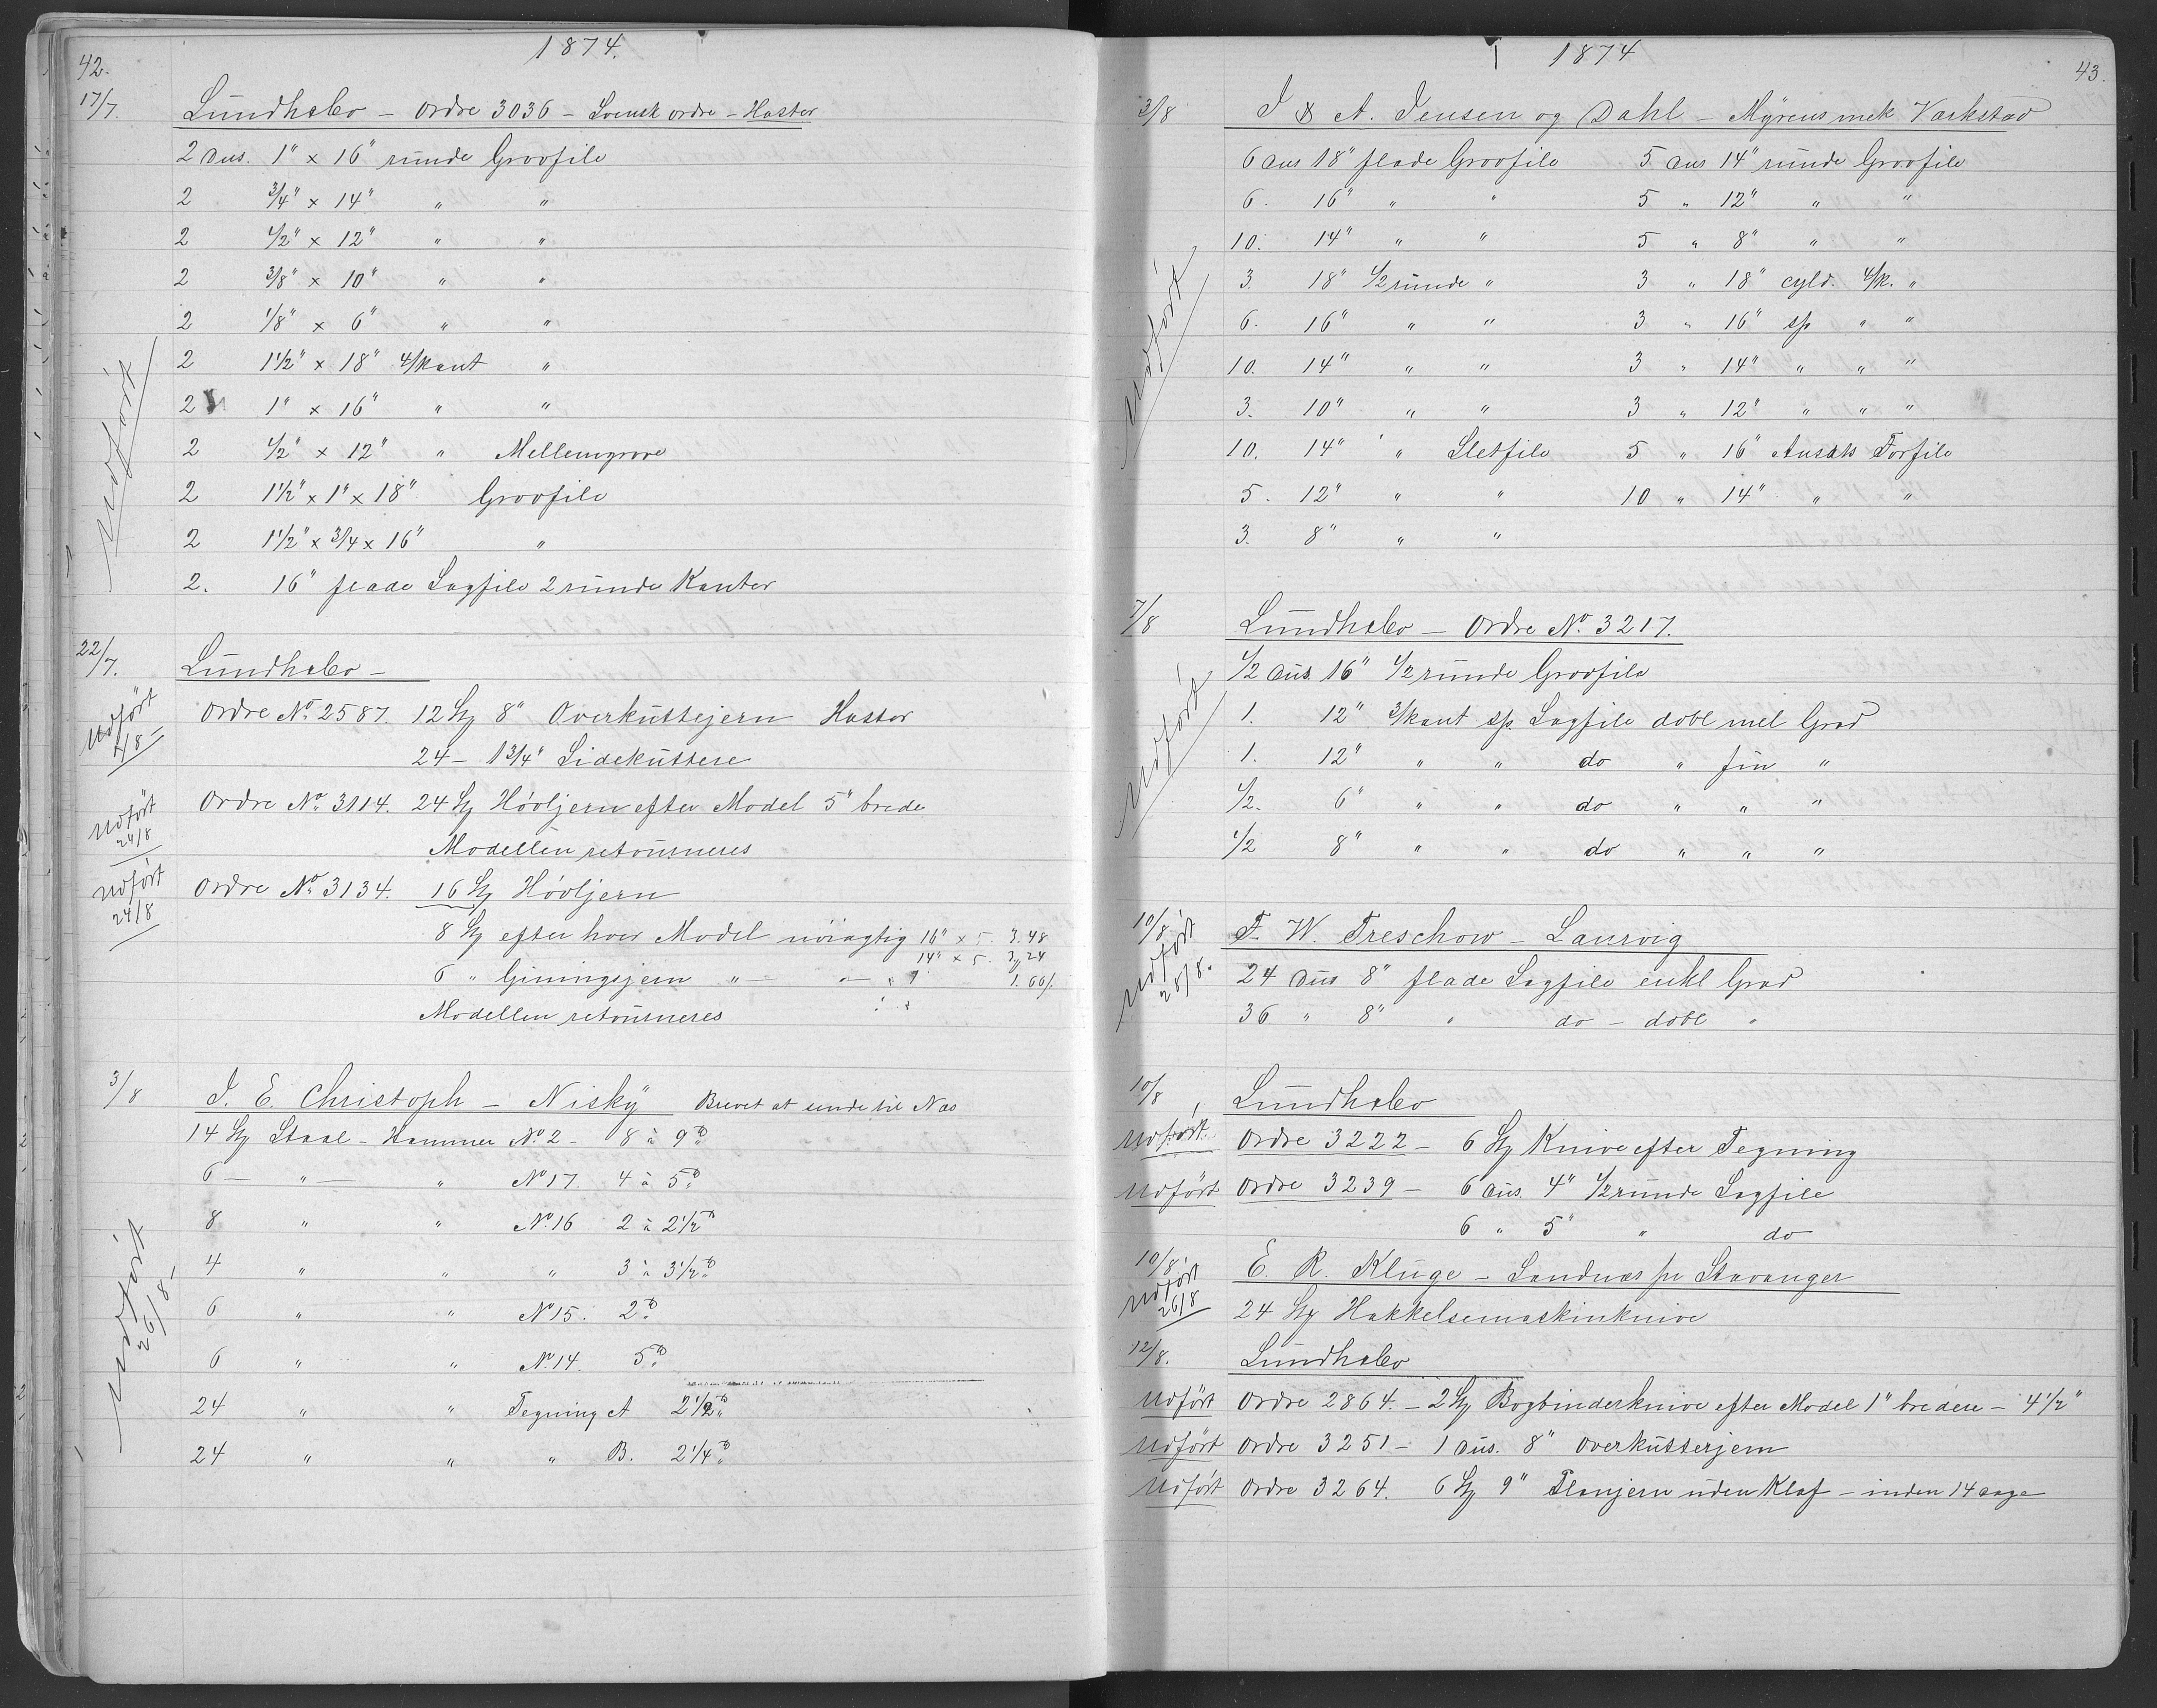 42.
1874.
17/7. Lundhsbo – Ordre 3036 – Svensk ordre – Haster
2 Dus. 1" × 16" runde Grovfile
2 3/4" × 14" " "
2 1/2" × 12" " "
2 3/8" × 10" " "
2 1/8" × 6" " "
2 1 1/2" × 18" 4/kant "
2 1" × 16" " "
2 1/2" × 12" " Mellemgrove
2 1 1/2" × 1" × 18" Grovfile
2 1 1/2" × 3/4 × 16" "
2. 16" flade Sagfile 2 runde Kanter
udført
22/7. Lundhsbo –
Udført 4/8 –
Ordre No 2587. 12 St 8" Overkuttejern Haster
24 – 1 3/4" Sidekuttere
Udført 24/8
Ordre No 3114. 24 St Høvljern efter Model 5" brede
Modellen retourneres
Udført 24/8
Ordre No 3134. 16 St Høvljern
8 St efter hver Model nøiagtig 16" × 5. 3.48
14" × 5. 3,24
6 " Giningsjern " – " – 1.66/.
Modellen retourneres
3/8 I. E. Christoph – Nisky Brevet at sende til Næs
14 St Staal – Hammer No 2 – 8 à 9 ℔
6 – " – " No 17. 4 à 5 ℔
8 " " No 16 2 à 2 1/2 ℔
4 " " " 3 à 3 1/2 ℔
6 " " No 15. 2 ℔
6 " " No 14. 5 ℔
24 " " Tegning A 2 1/2 ℔
24 " " " B. 2 1/4 ℔
udført 26/8 –
1874
43.
3/8 I & A. Jensen og Dahl – Myrens mek Værkstad
6 Dus 18" flade Grovfile 5 Dus 14" runde Grovfile
6. 16" " " 5 " 12" " "
10. 14" " " 5 " 8" " "
3. 18" 1/2 runde " 3 " 18" cyld. 4/k. "
6. 16" " " 3 " 16" sp " "
10. 14" " " 3 " 14" " " "
3. 10" " " 3 " 12" " " "
10. 14" " Sletfile 5 " 16" Ansats Forfile
5. 12" " " 10 " 14" " "
3. 8" " "
udført
7/8 Lundhsbo – Ordre No. 3217.
1/2 Dus. 16" 1/2 runde Grovfile
1. 12" 3/kant sp. Sagfile dobl mel Grad
1. 12" " " do " fin "
1/2. 6" " " do " " "
1/2 8" " " do " " "
udført
10/8 F. W. Treschow – Laurvig
udført 28/8.
24 Dus 8" flade Sagfile enkl Grad
36 " 8" " do – dobl "
10/8 Lundhsbo
Udført Ordre 3222 – 6 St Knive efter Tegning
Udført Ordre 3239 – 6 Dus. 4" 1/2 runde Sagfile
6 " 5" " do
10/8 E. R. Kluge – Sandnæs pr Stavanger
Udført 26/8
24 St Hakkelsemaskinknive
12/8. Lundhsbo
Udført Ordre 2864. – 2 St Bogbinderknive efter Model 1" bredere – 4 1/2"
Udført Ordre 3251 – 1 Dus. 8" Overkutterjern
Udført Ordre 3264. 6 St 9" Planjern uden Klaf – inden 14 Dage